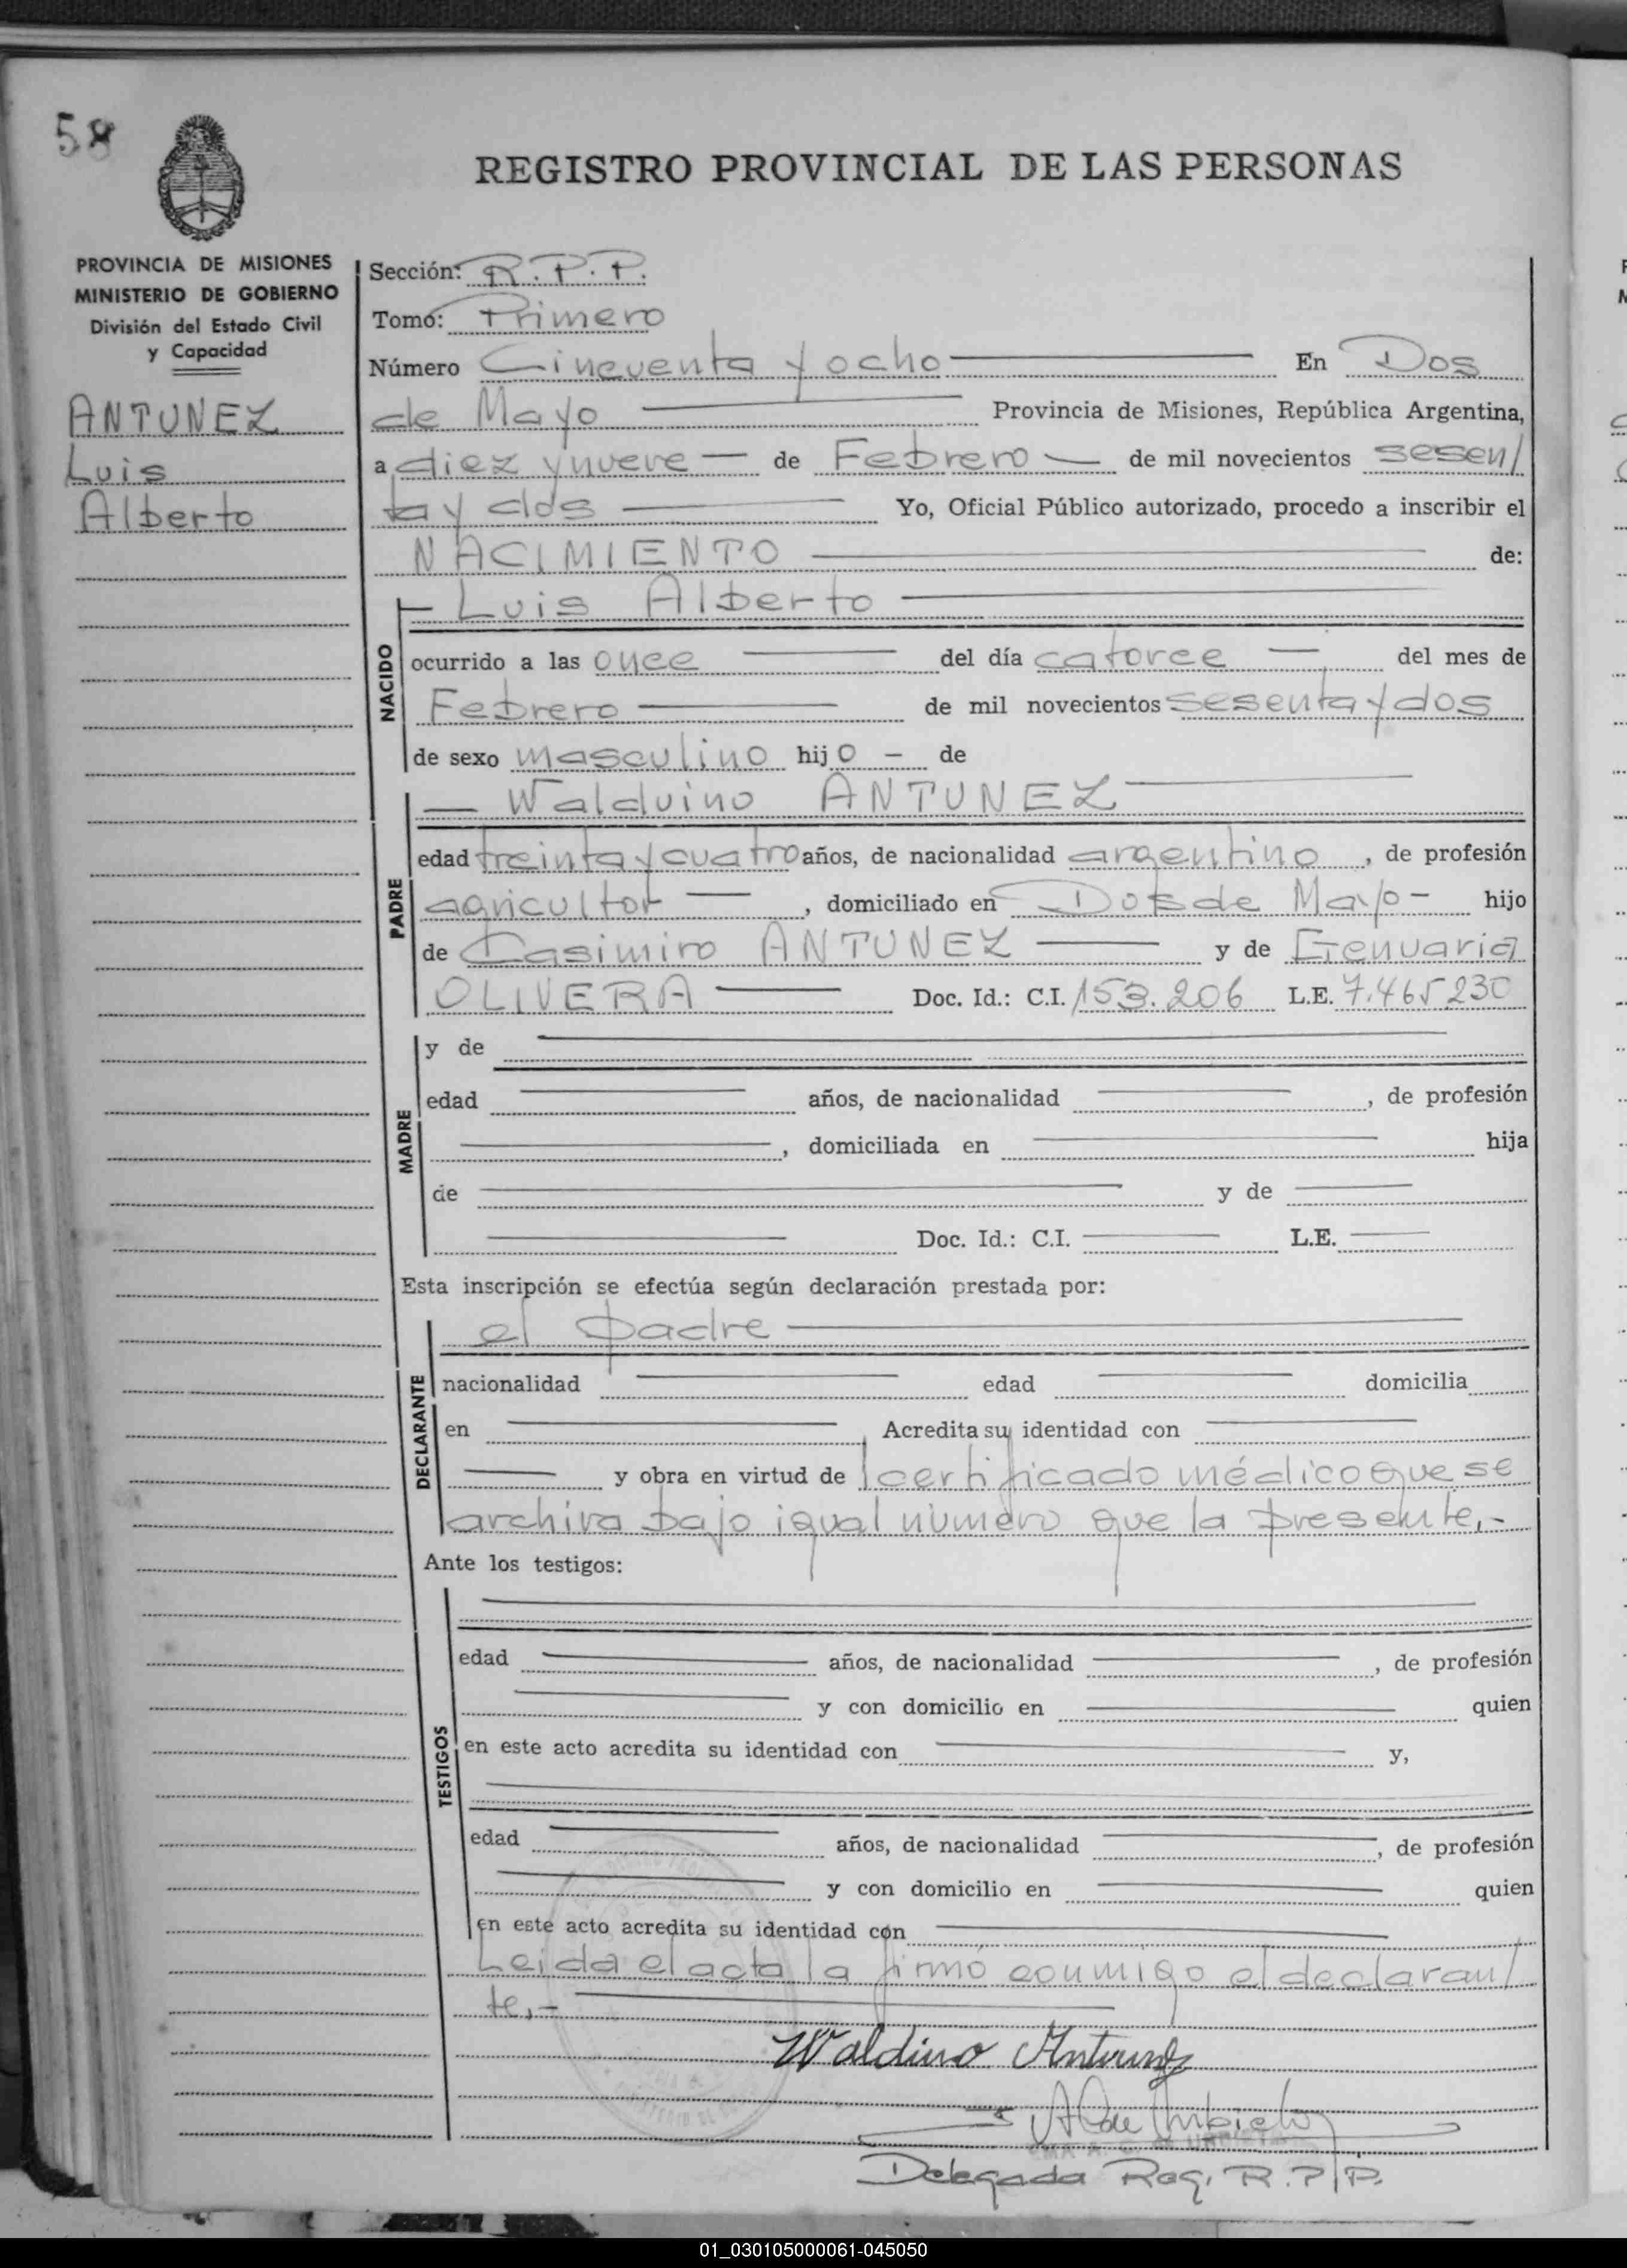 58
REGISTRO PROVINCIAL DE LAS PERSONAS
PROVINCIA DE MISIONES
MINISTERIO DE GOBIERNO
División del Estado Civil
y Capacidad
ANTUNEZ
Luis
Alberto
Sección: R.P.P.
Tomo: Primero
Número Cincuenta y ocho En Dos
de Mayo Provincia de Misiones, República Argentina,
a diez y nueve — de Febrero — de mil novecientos sesen/
ta y dos Yo, Oficial Público autorizado, procedo a inscribir el
NACIMIENTO de:
NACIDO
— Luis Alberto
ocurrido a las once del día catorce — del mes de
Febrero de mil novecientos sesenta y dos
de sexo masculino hijo — de
PADRE
— Walduino ANTUNEZ
edad treinta y cuatro años, de nacionalidad argentino, de profesión
agricultor —, domiciliado en Dos de Mayo — hijo
de Casimiro ANTUNEZ y de Genuaria
OLIVERA Doc. Id.: C.I. 153.206 L.E. 7.465230
MADRE
y de
edad años, de nacionalidad , de profesión
, domiciliada en hija
de y de
Doc. Id.: C.I. L.E.
Esta inscripción se efectúa según declaración prestada por:
DECLARANTE
el padre
nacionalidad edad domicilia
en Acredita su identidad con
y obra en virtud de certificado médico que se
archiva bajo igual número que la presente.-
Ante los testigos:
TESTIGOS
edad años, de nacionalidad , de profesión
y con domicilio en quien
en este acto acredita su identidad con y,
edad años, de nacionalidad , de profesión
y con domicilio en quien
en este acto acredita su identidad con
Leida el acta la firmó conmigo el declaran/
te.-
Waldino Antunez
Delegada Reg. R.P.P.
01_030105000061-045050